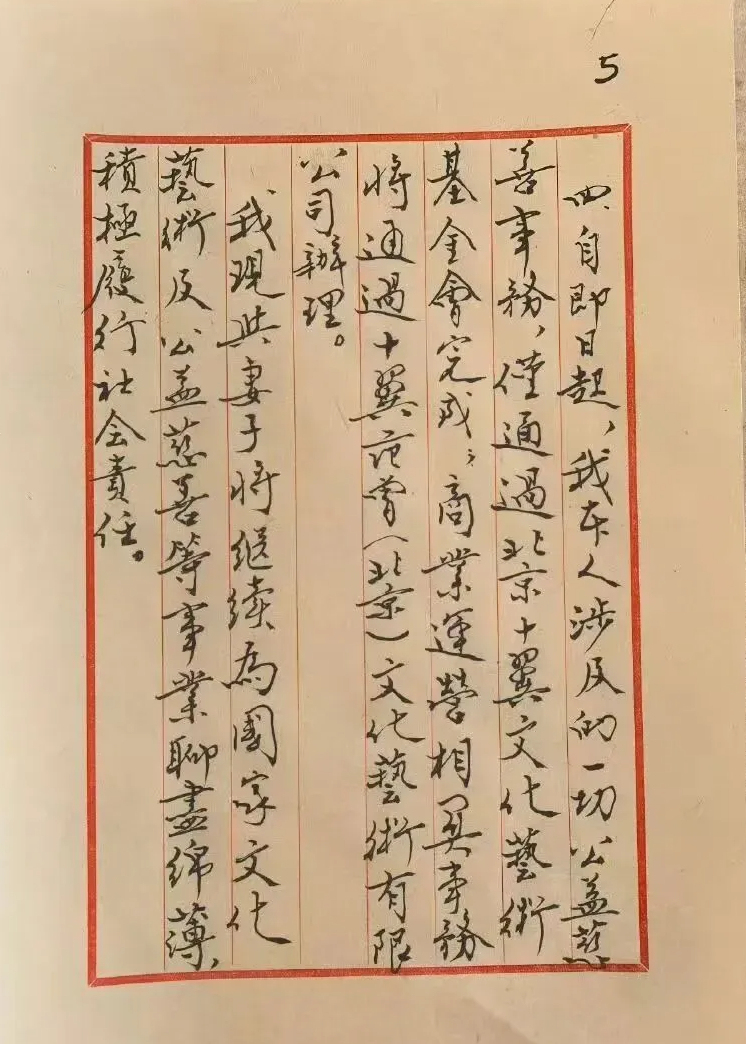 5
四、自即日起，我本人涉及的一切公益慈
善事務，僅通過北京十翼文化藝術
基金會完成；商業運營相關事務
將通過十翼范曾（北京）文化藝術有限
公司辦理。
我現與妻子將继续為國家文化
藝術及公益慈善等事業聊盡绵薄，
積極履行社会責任。